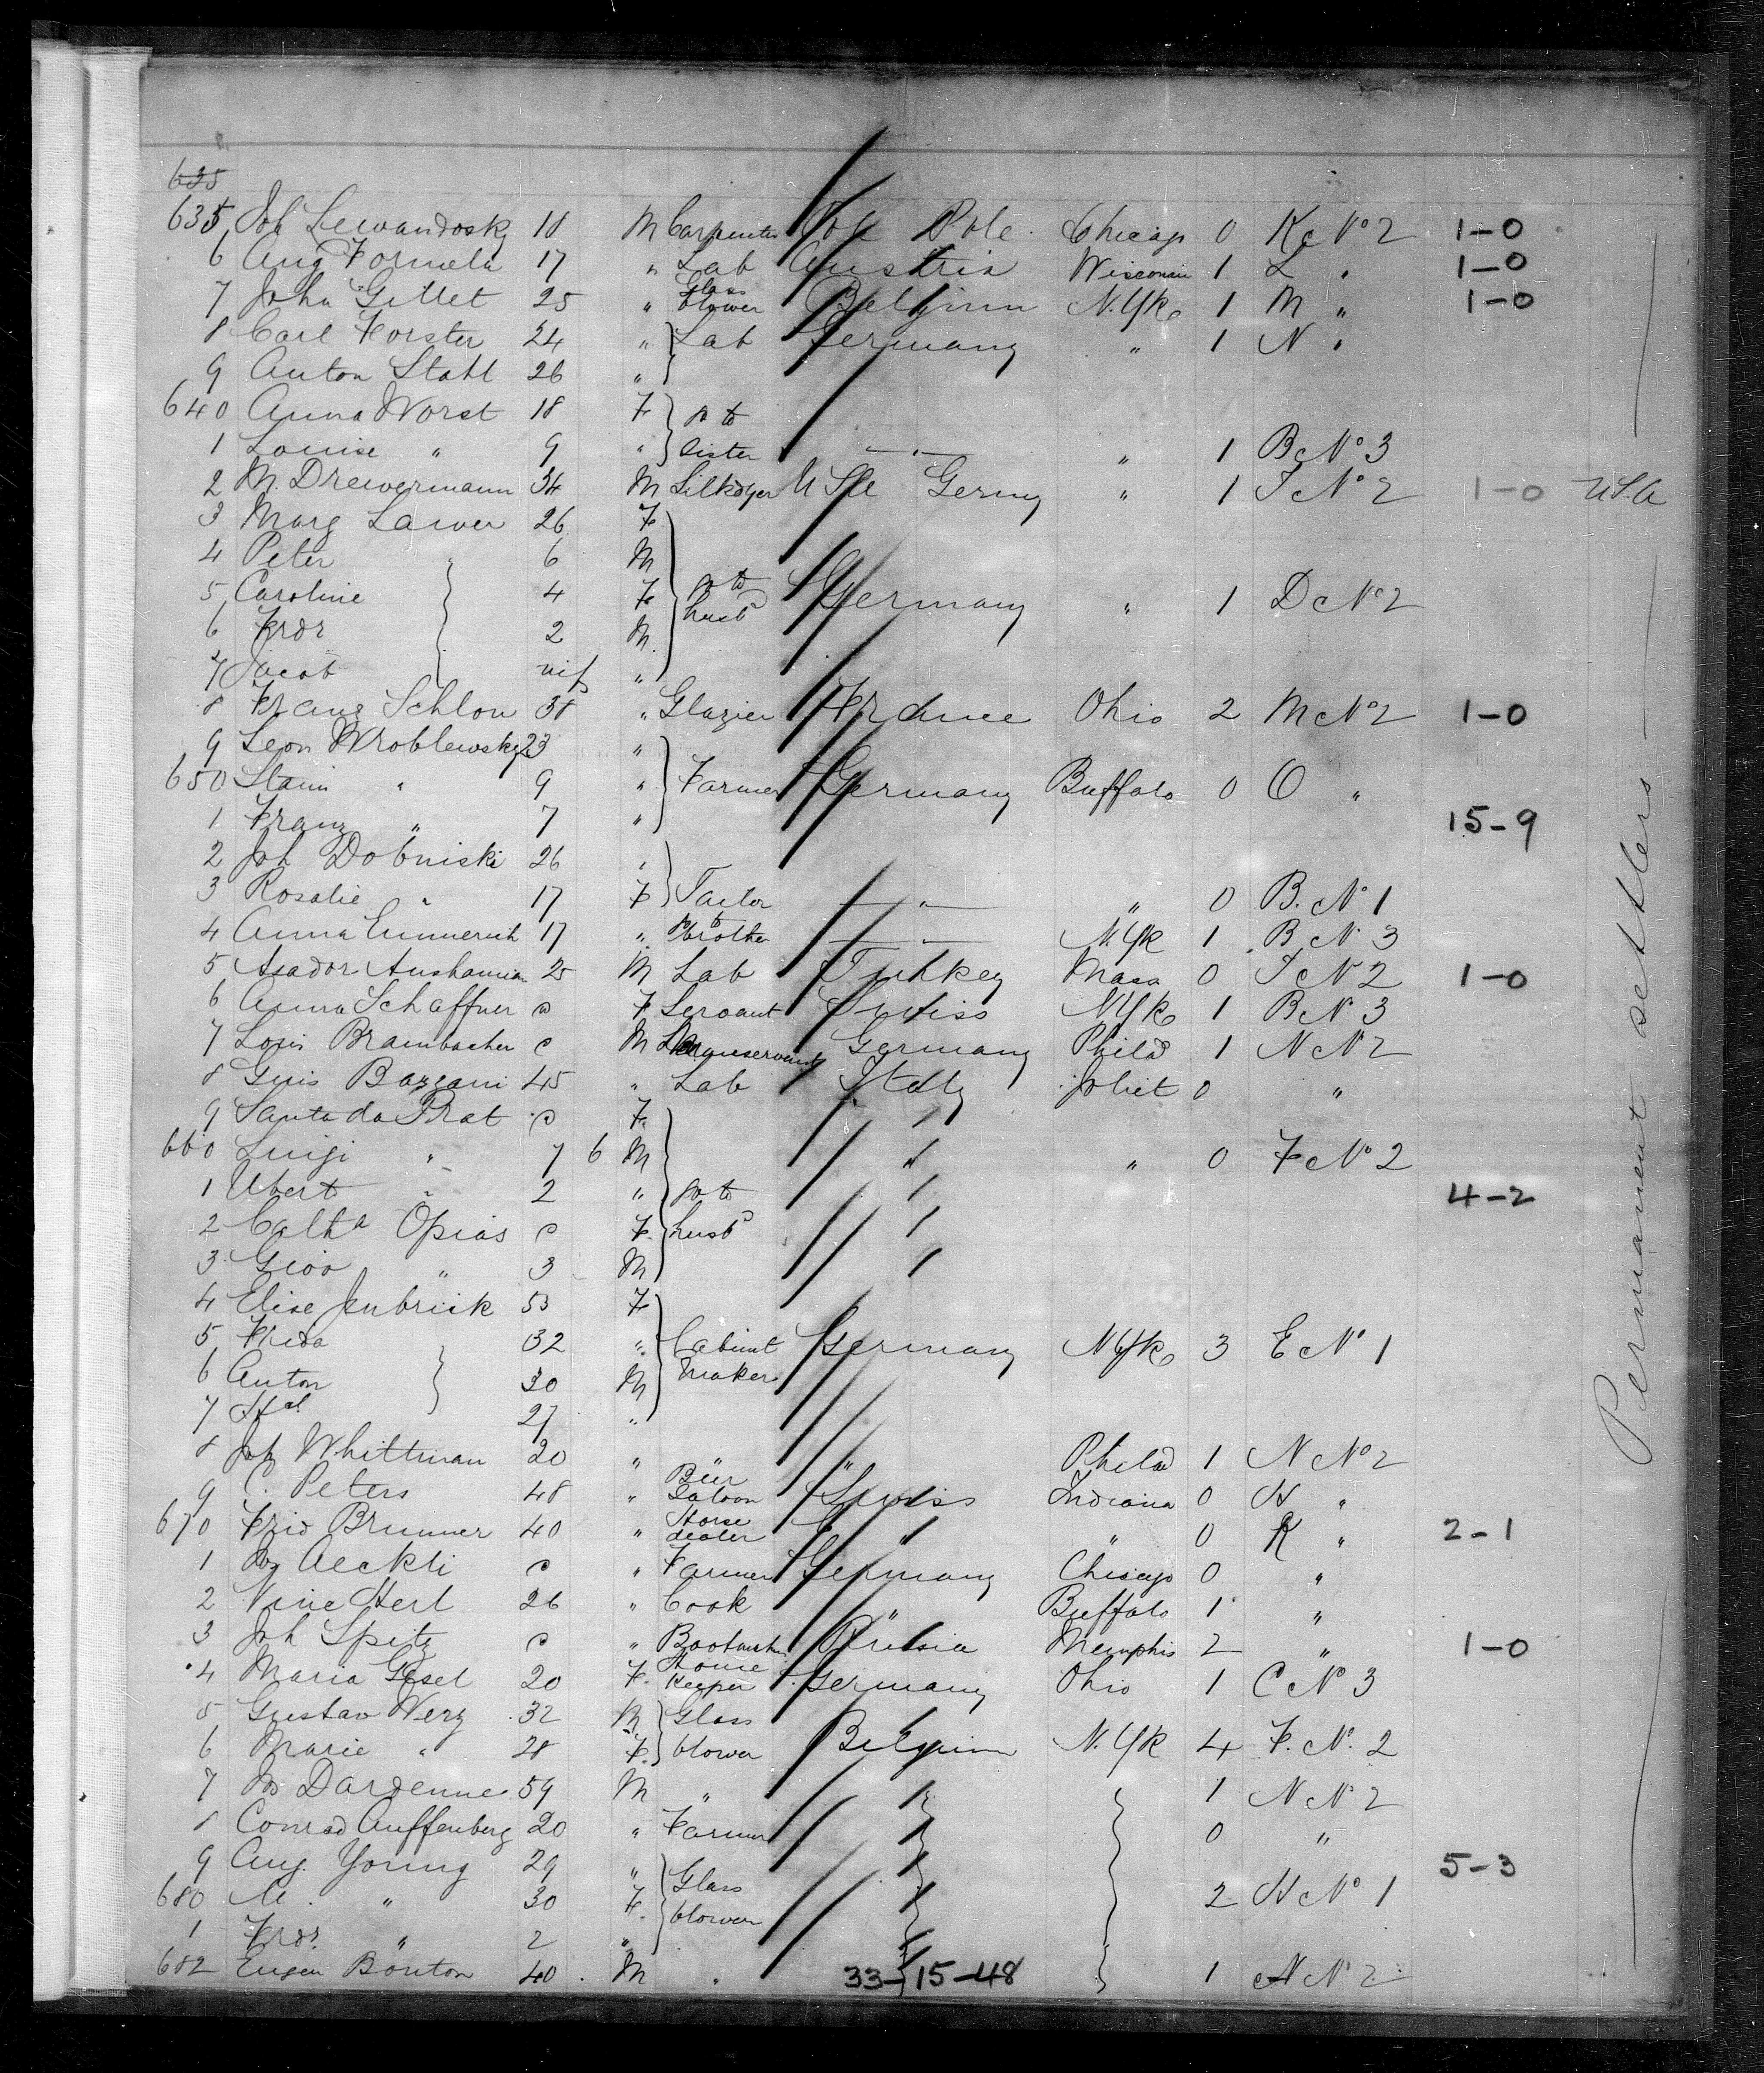 625
635 Joh Lewandosky 18 M Carpenter Pole Pole Chicago 0 K No 2 1-0
6 Aug Formela 17 " Lab Austria Wisconsin 1 L " 1-0
7 John Gillet 25 " Glass blower Belgium N.Yk 1 M " 1-0
8 Carl Forster 24 " Lab Germany " 1 N "
9 Anton Stahl 26 "
640 Anna Worst 18 F go to
1 Louise " 9 " sister " " 1 B No 3
2 M. Drewermann 34 M Silkdyer USA Germy " 1 I No 2 1-0 U.S.A
3 Marg Lawer 26 F
4 Peter 6 M
5 Caroline " 4 F go to Germany " 1 D No 2
6 Fredr 2 M husbd
7 Jacob inf "
8 Franz Schlon 38 " Glazier France Ohio 2 M No 2 1-0
9 Leon Wroblewsky 23 "
650 Stani " 9 " Farmer Germany Buffalo 0 O "
1 Franz " 7 " 15-9
2 Joh Dobniski 26 "
3 Rosalie " 17 F Tailor " " 0 B. No 1
4 Anna Emmerich 17 " to brother " N.Yk 1 B No 3
5 Asador Aushamian 25 M Lab Turkey Mass 0 I No 2 1-0
6 Anna Schaffner c F Servant Swiss N.Yk 1 B No 3
7 Louis Brambacher c M Germany Philad 1 N No 2
8 Guis Bazzani 45 " Lab Italy Joliet 0 "
9 Santa da Prat c F
660 Luigi " 7 6 M " " 0 F No 2
1 Ubert " 2 " go to 4-2
2 Calta Opias c F husbd
3 Giov " 3 M
4 Elise Jenbrick 53 F
5 Frieda 32 " Cabinet Germany N.Yk 3 E No 1
6 Anton " 30 M maker
7 27 "
8 Joh Whittman 20 " " " Philad 1 N No 2
9 C. Peters 48 " Beer Saloon Swiss Indiana 0 H "
670 Frid Brunner 40 " Horse dealer " " 0 K " 2-1
1 Aeckli c " Farmer Germany Chicago 0 "
2 Vine Herl 26 " Cook " Buffalo 1 "
3 Joh Spitz c " Bootmkr Russia Memphis 2 " 1-0
4 Maria Gesel 20 F House Keeper Germany Ohio 1 C No 3
5 Gustav Werz 32 M Glass
6 Marie " 28 F blower Belgium N.Yk 4 F. No. 2
7 Jos Dardenne 59 M " 1 N No 2
8 Conrad Auffenberg 20 " Farmer 0 "
9 Aug. Young 29 " Glass 5-3
680 M. " 30 F blower 2 H No 1
1 Fredr. " 2 "
682 Eugen Bonton 40 M " 33-15-48 1 N No 2
Permanent settlers